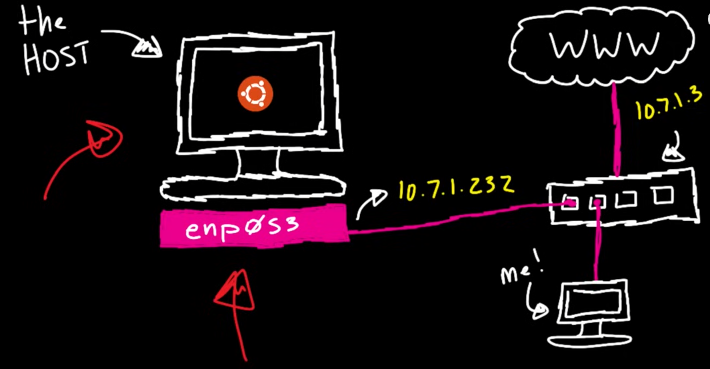 the
HOST
WWW
10.7.1.3
10.7.1.232
enp0s3
me!